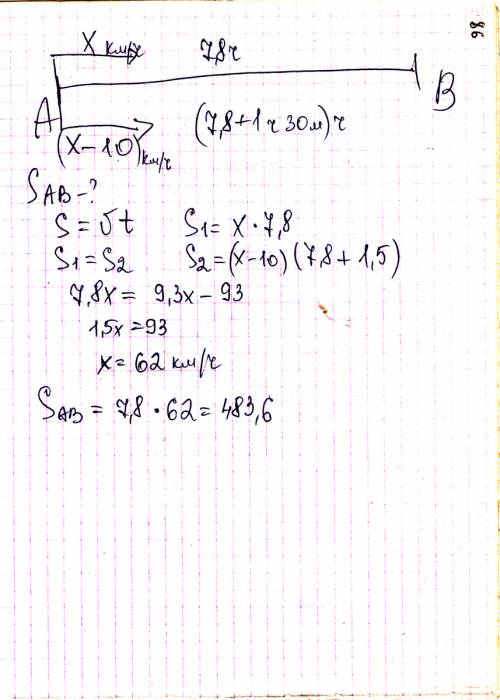 86
X км/ч 7,8ч
A B
(X-10)км/ч (7,8+1ч 30м)ч
SAB-?
S=vt S1=X·7,8
S1=S2 S2=(X-10)(7,8+1,5)
7,8X= 9,3x-93
1,5x=93
x=62 км/ч
SAB=7,8·62=483,6